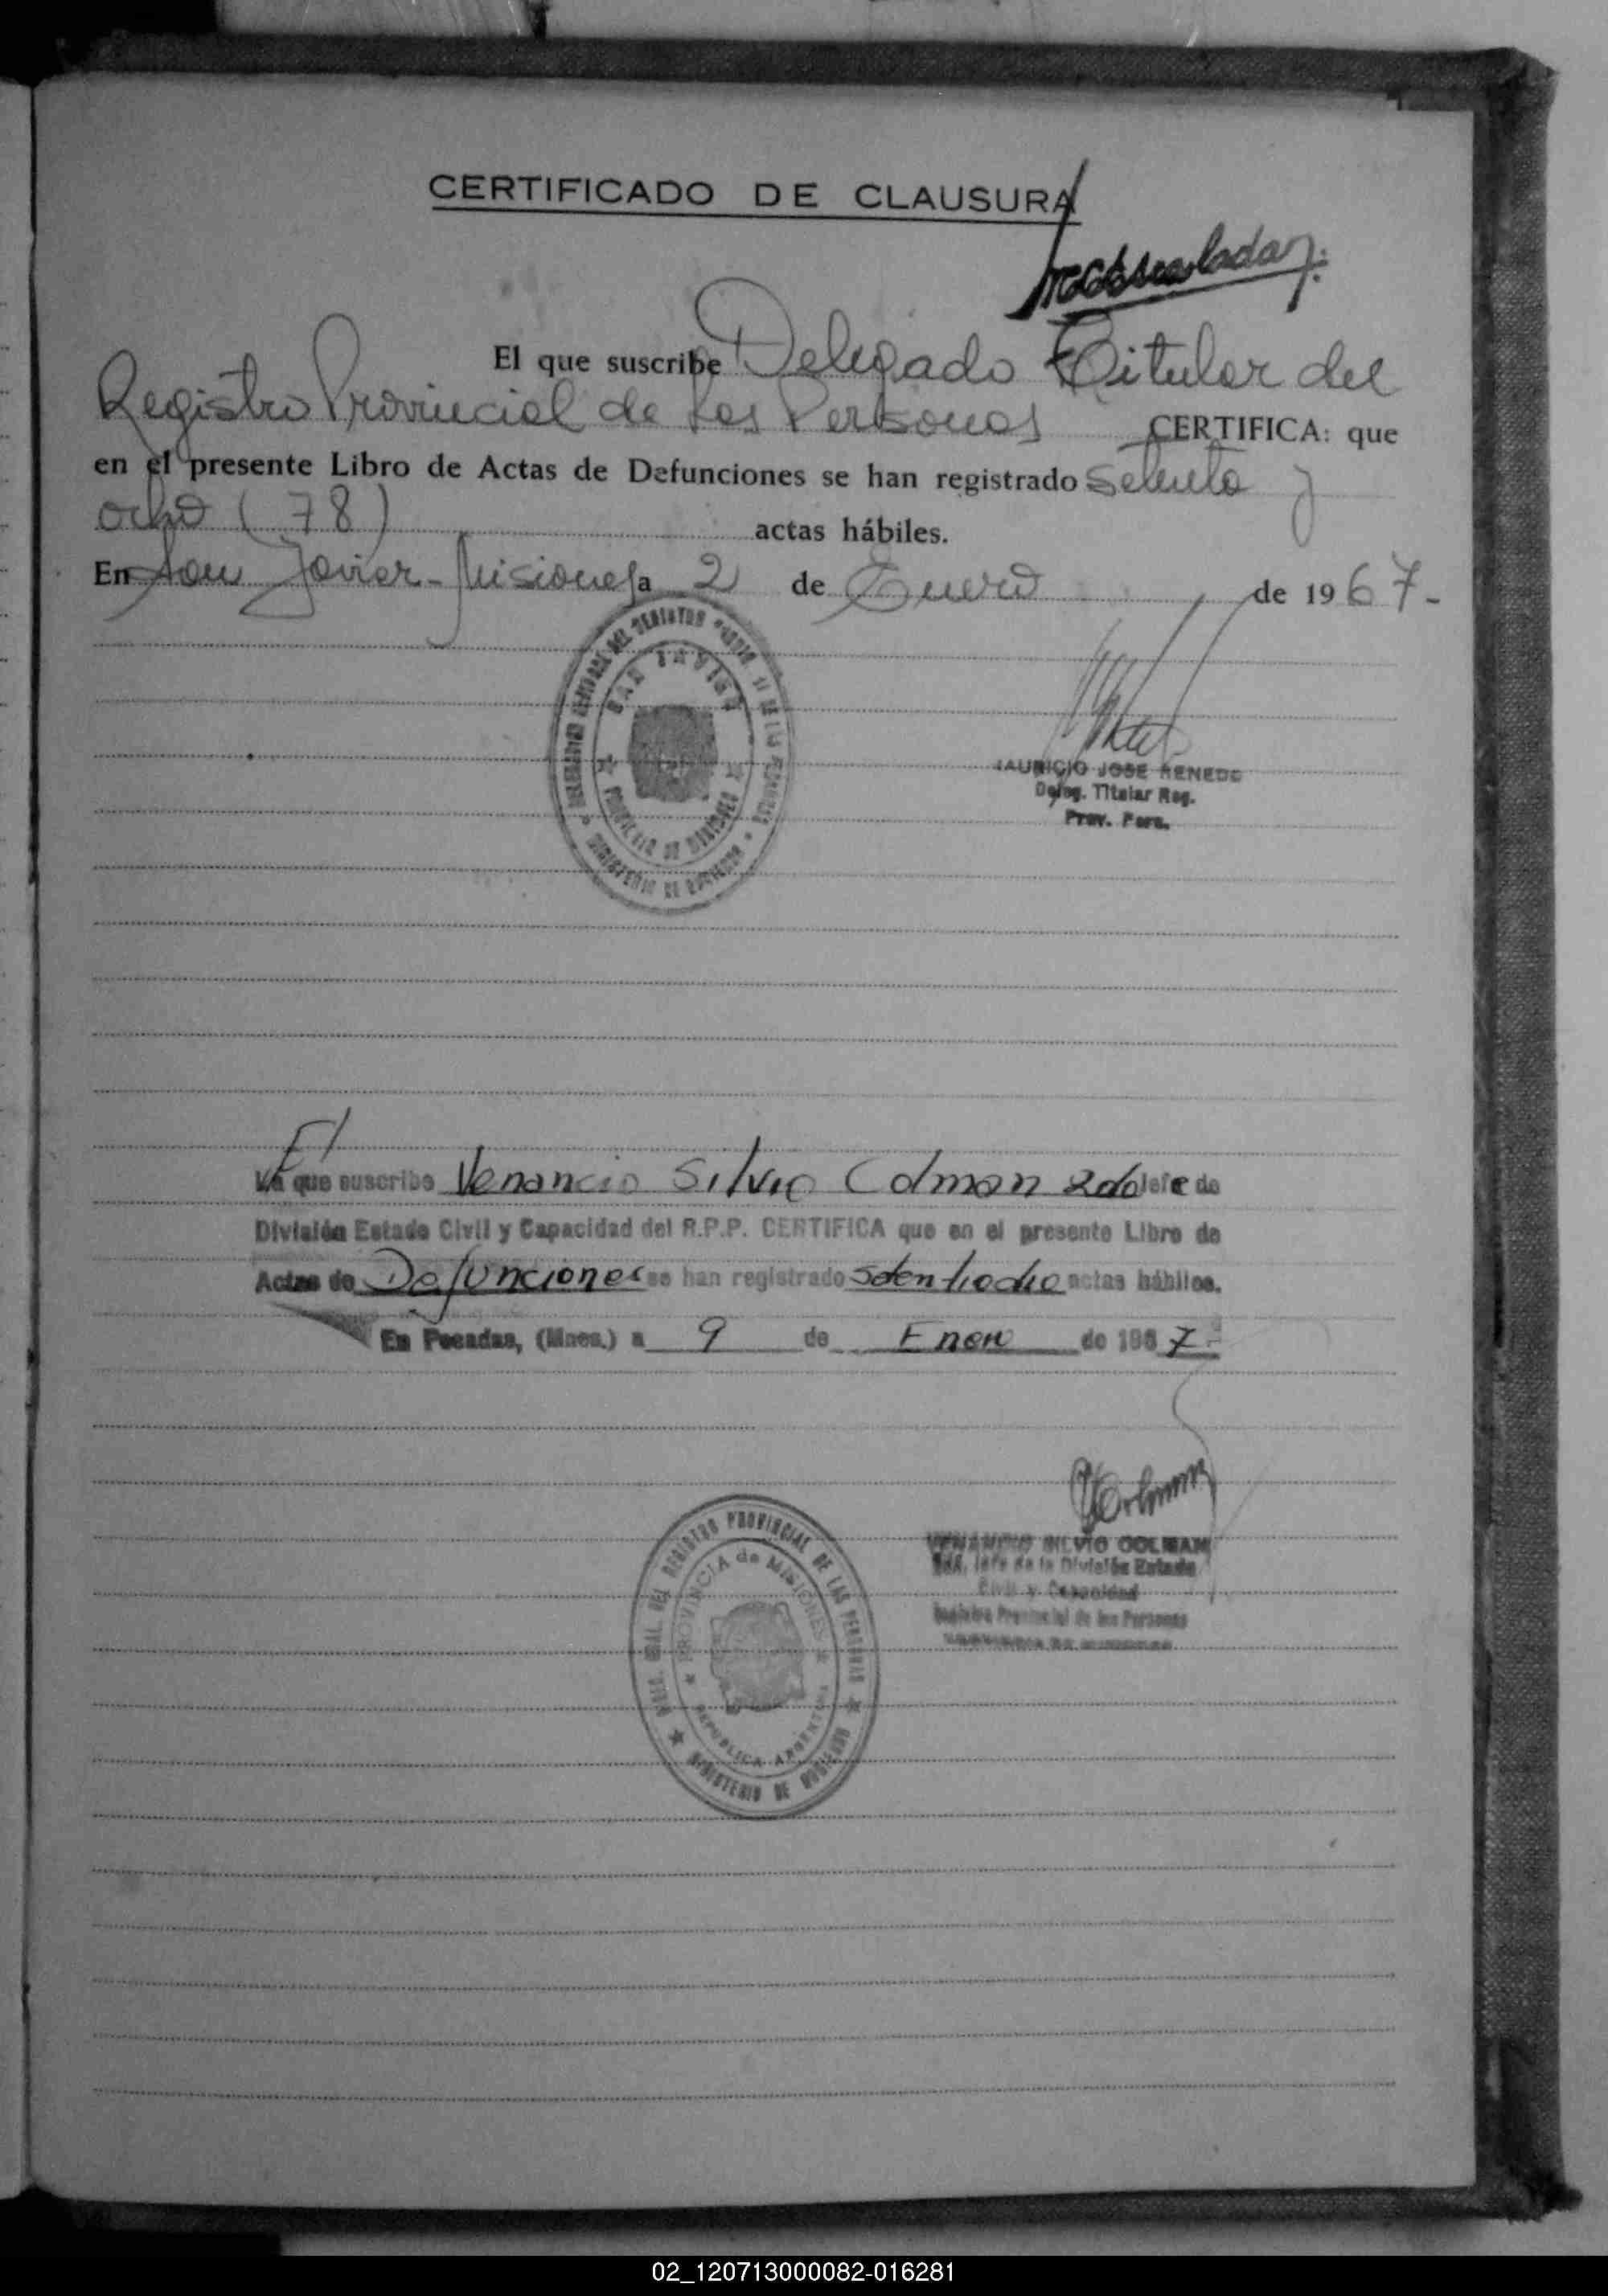 CERTIFICADO DE CLAUSURA
El que suscribe Delegado Titular del
Registro Provincial de las Personas CERTIFICA: que
en el presente Libro de Actas de Defunciones se han registrado setenta y
ocho (78) actas hábiles.
En San Javier - Misiones a 2 de Enero de 1967.-
DEL REGISTRO DE LAS PERSONAS
SAN JAVIER
PROVINCIA DE MISIONES
MINISTERIO DE GOBIERNO
MAURICIO JOSE RENEDO
Deleg. Titular Reg.
Prov. Pers.
El
que suscribe Venancio Silvio Colman 2do Jefe de
División Estado Civil y Capacidad del R.P.P. CERTIFICA que en el presente Libro de
Actas de Defunciones se han registrado setentiocho actas hábiles.
En Posadas, (Mnes.) a 9 de Enero de 1967.-
Colman
VENANCIO SILVIO COLMAN
2do. Jefe de la División Estado
Civil y Capacidad
Registro Provincial de las Personas
PROVINCIA DE MISIONES
GRAL. DEL REGISTRO PROVINCIAL DE LAS PERSONAS
PROVINCIA de MISIONES
REPUBLICA ARGENTINA
MINISTERIO DE GOBIERNO
02_120713000082-016281